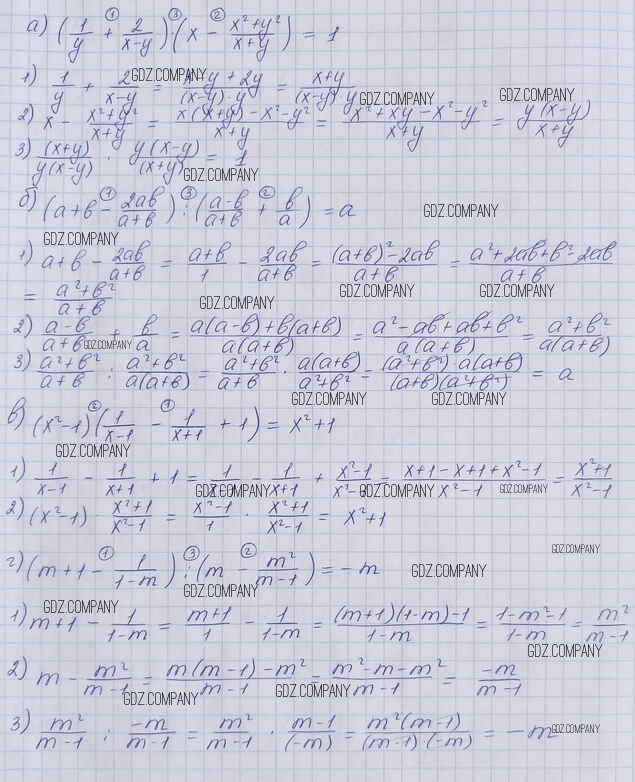 а) (1/y + 2/(x-y)) (x - (x²+y²)/(x+y)) = 1 ① ③ ②
1) 1/y + 2/(x-y) = (x-y+2y)/((x-y)·y) = (x+y)/((x-y)·y)
2) x - (x²+y²)/(x+y) = (x(x+y)-x²-y²)/(x+y) = (x²+xy-x²-y²)/(x+y) = y(x-y)/(x+y)
3) (x+y)/(y(x-y)) · y(x-y)/(x+y) = 1
б) (a+в - 2aв/(a+в)) : ((a-в)/(a+в) + в/a) = a ① ③ ②
1) a+в - 2aв/(a+в) = (a+в)/1 - 2aв/(a+в) = ((a+в)²-2aв)/(a+в) = (a²+2aв+в²-2aв)/(a+в)
= (a²+в²)/(a+в)
2) (a-в)/(a+в) + в/a = (a(a-в)+в(a+в))/(a(a+в)) = (a²-aв+aв+в²)/(a(a+в)) = (a²+в²)/(a(a+в))
3) (a²+в²)/(a+в) : (a²+в²)/(a(a+в)) = (a²+в²)/(a+в) · a(a+в)/(a²+в²) = ((a²+в²)·a(a+в))/((a+в)(a²+в²)) = a
в) (x²-1)(1/(x-1) - 1/(x+1) + 1) = x²+1 ② ①
1) 1/(x-1) - 1/(x+1) + 1 = 1/(x-1) - 1/(x+1) + (x²-1)/(x²-1) = (x+1-x+1+x²-1)/(x²-1) = (x²+1)/(x²-1)
2) (x²-1) · (x²+1)/(x²-1) = (x²-1)/1 · (x²+1)/(x²-1) = x²+1
г) (m+1 - 1/(1-m)) : (m - m²/(m-1)) = -m ① ③ ②
1) m+1 - 1/(1-m) = (m+1)/1 - 1/(1-m) = ((m+1)(1-m)-1)/(1-m) = (1-m²-1)/(1-m) = m²/(m-1)
2) m - m²/(m-1) = (m(m-1)-m²)/(m-1) = (m²-m-m²)/(m-1) = -m/(m-1)
3) m²/(m-1) : -m/(m-1) = m²/(m-1) · (m-1)/(-m) = m²(m-1)/((m-1)·(-m)) = -m
GDZ.COMPANY